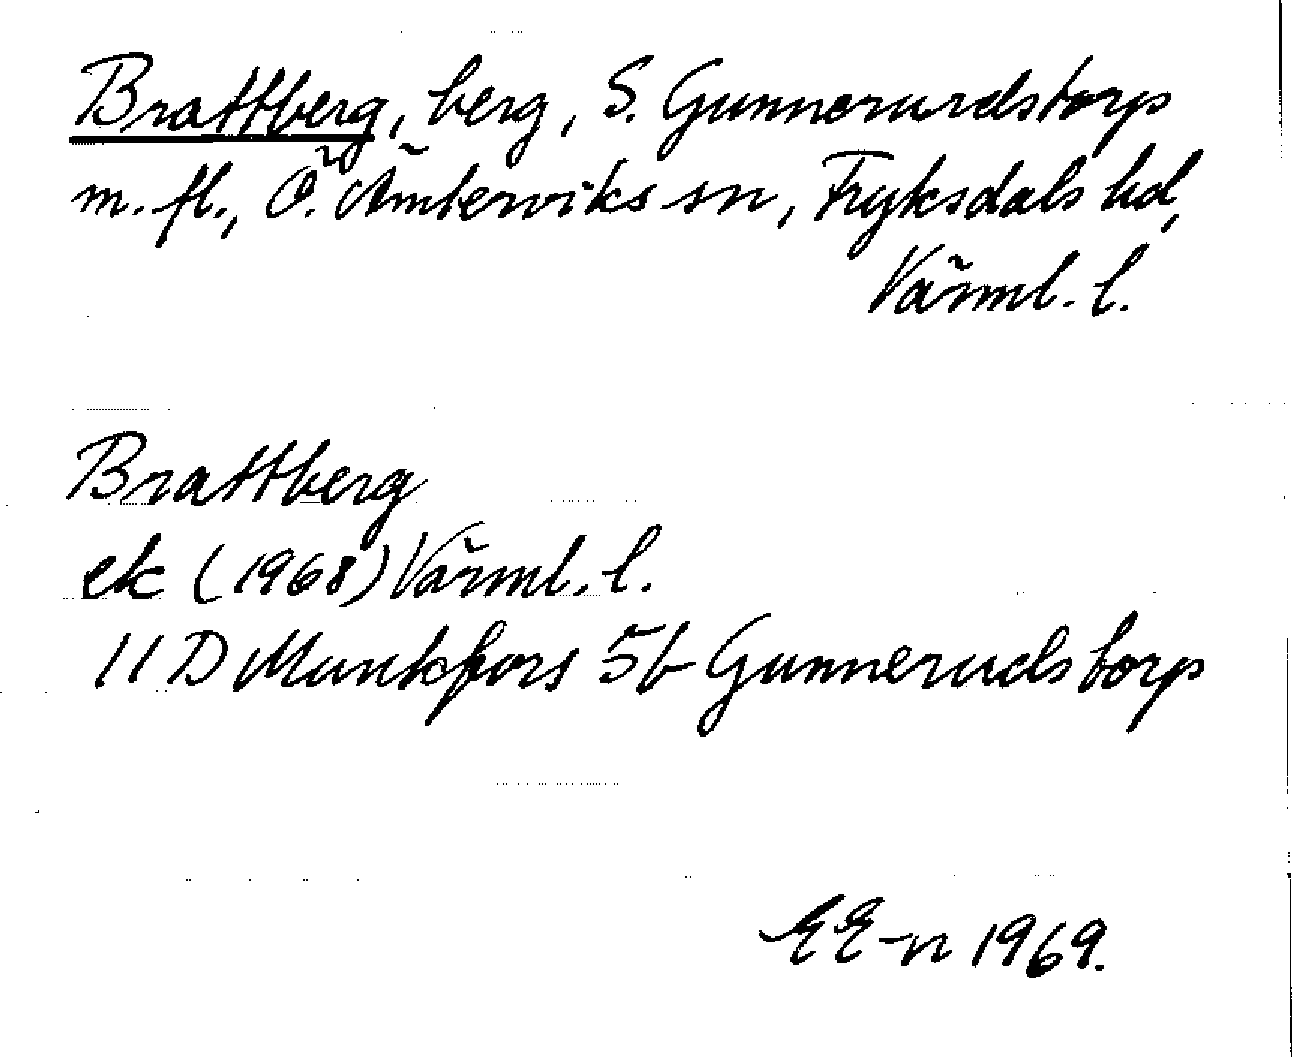 Brattberg, berg, S. Gunnerurdstorp
m. fl., Ö. Ämterviks sn, Fryksdals hd,
Värml. l.
Brattberg
ek (1968) Värml. l.
11 D Munkfors 5b Gunnerudstorp
EE-n 1969.